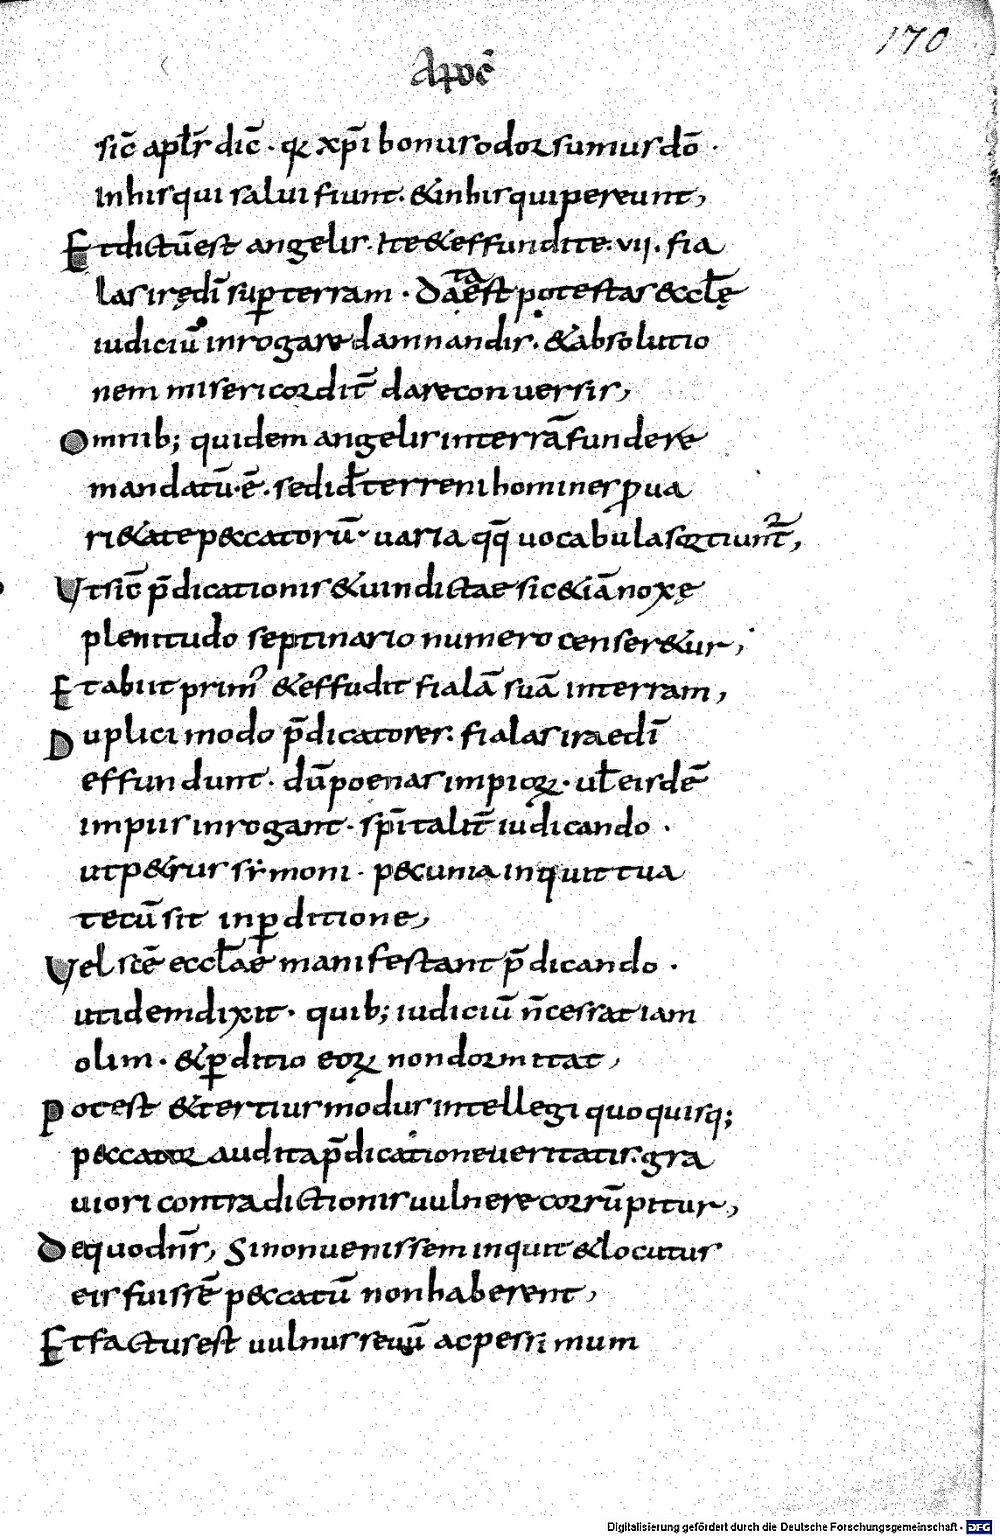 170
Apoc̄
sic̄ apl̄s dic̄ · qꝛ xp̄i bonus odor sumus dō ·
In his qui salui fiunt · & in his qui pereunt,
Et dictū est angelis. Ite & effundite · vii · fia
las irę dī sup̱ terram · Data est potestas eccl̄ę
iudiciū inrogare damnandis · & absolutio
nem misericordit̄ dare conuersis,
Omnib; quidem angelis in terrā fundere
mandatū · ē · sed id̄ terreni homines ꝓ ua
ri&ate peccatorū · uaria qq̄ uocabula sortiunt̄,
Ut sic̄ p̄dicationis & uindictae sic & iā noxę
plenitudo septinario numero censer&ur,
Et abiit prim' & effudit fialā suā in terram,
Duplici modo p̄dicatores · fialas irae dī
effundunt · dū poenas impioꝝ · ul̄ eisdē
impiis inrogant · sp̄italit̄ iudicando ·
ut p&rus symoni · pecunia inquit tua
tecū sit in p̱ditione,
Uel scē eccl̄ae manifestant p̄dicando ·
ut idem dixit · quib; iudiciū n̄ cessat iam
olim · & p̱ditio eoꝝ non dormitat,
Potest & tertius modus intellegi quo quisq;
peccator audita p̄dicatione ueritatis · gra
uiori contradictionis uulnere corrūpitur,
De quo dn̄s, Si non uenissem inquit & locutus
eis fuissē peccatū non haberent,
Et factus est uulnus seuū ac pessimum
Digitalisierung gefördert durch die Deutsche Forschungsgemeinschaft - DFG